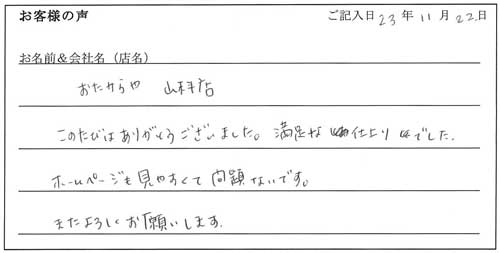 お客様の声 ご記入日 23年 11月 22日
お名前&会社名（店名）
おたからや 山科店
このたびはありがとうございました。満足な仕上りでした。
ホームページも見やすくて問題ないです。
またよろしくお願いします。